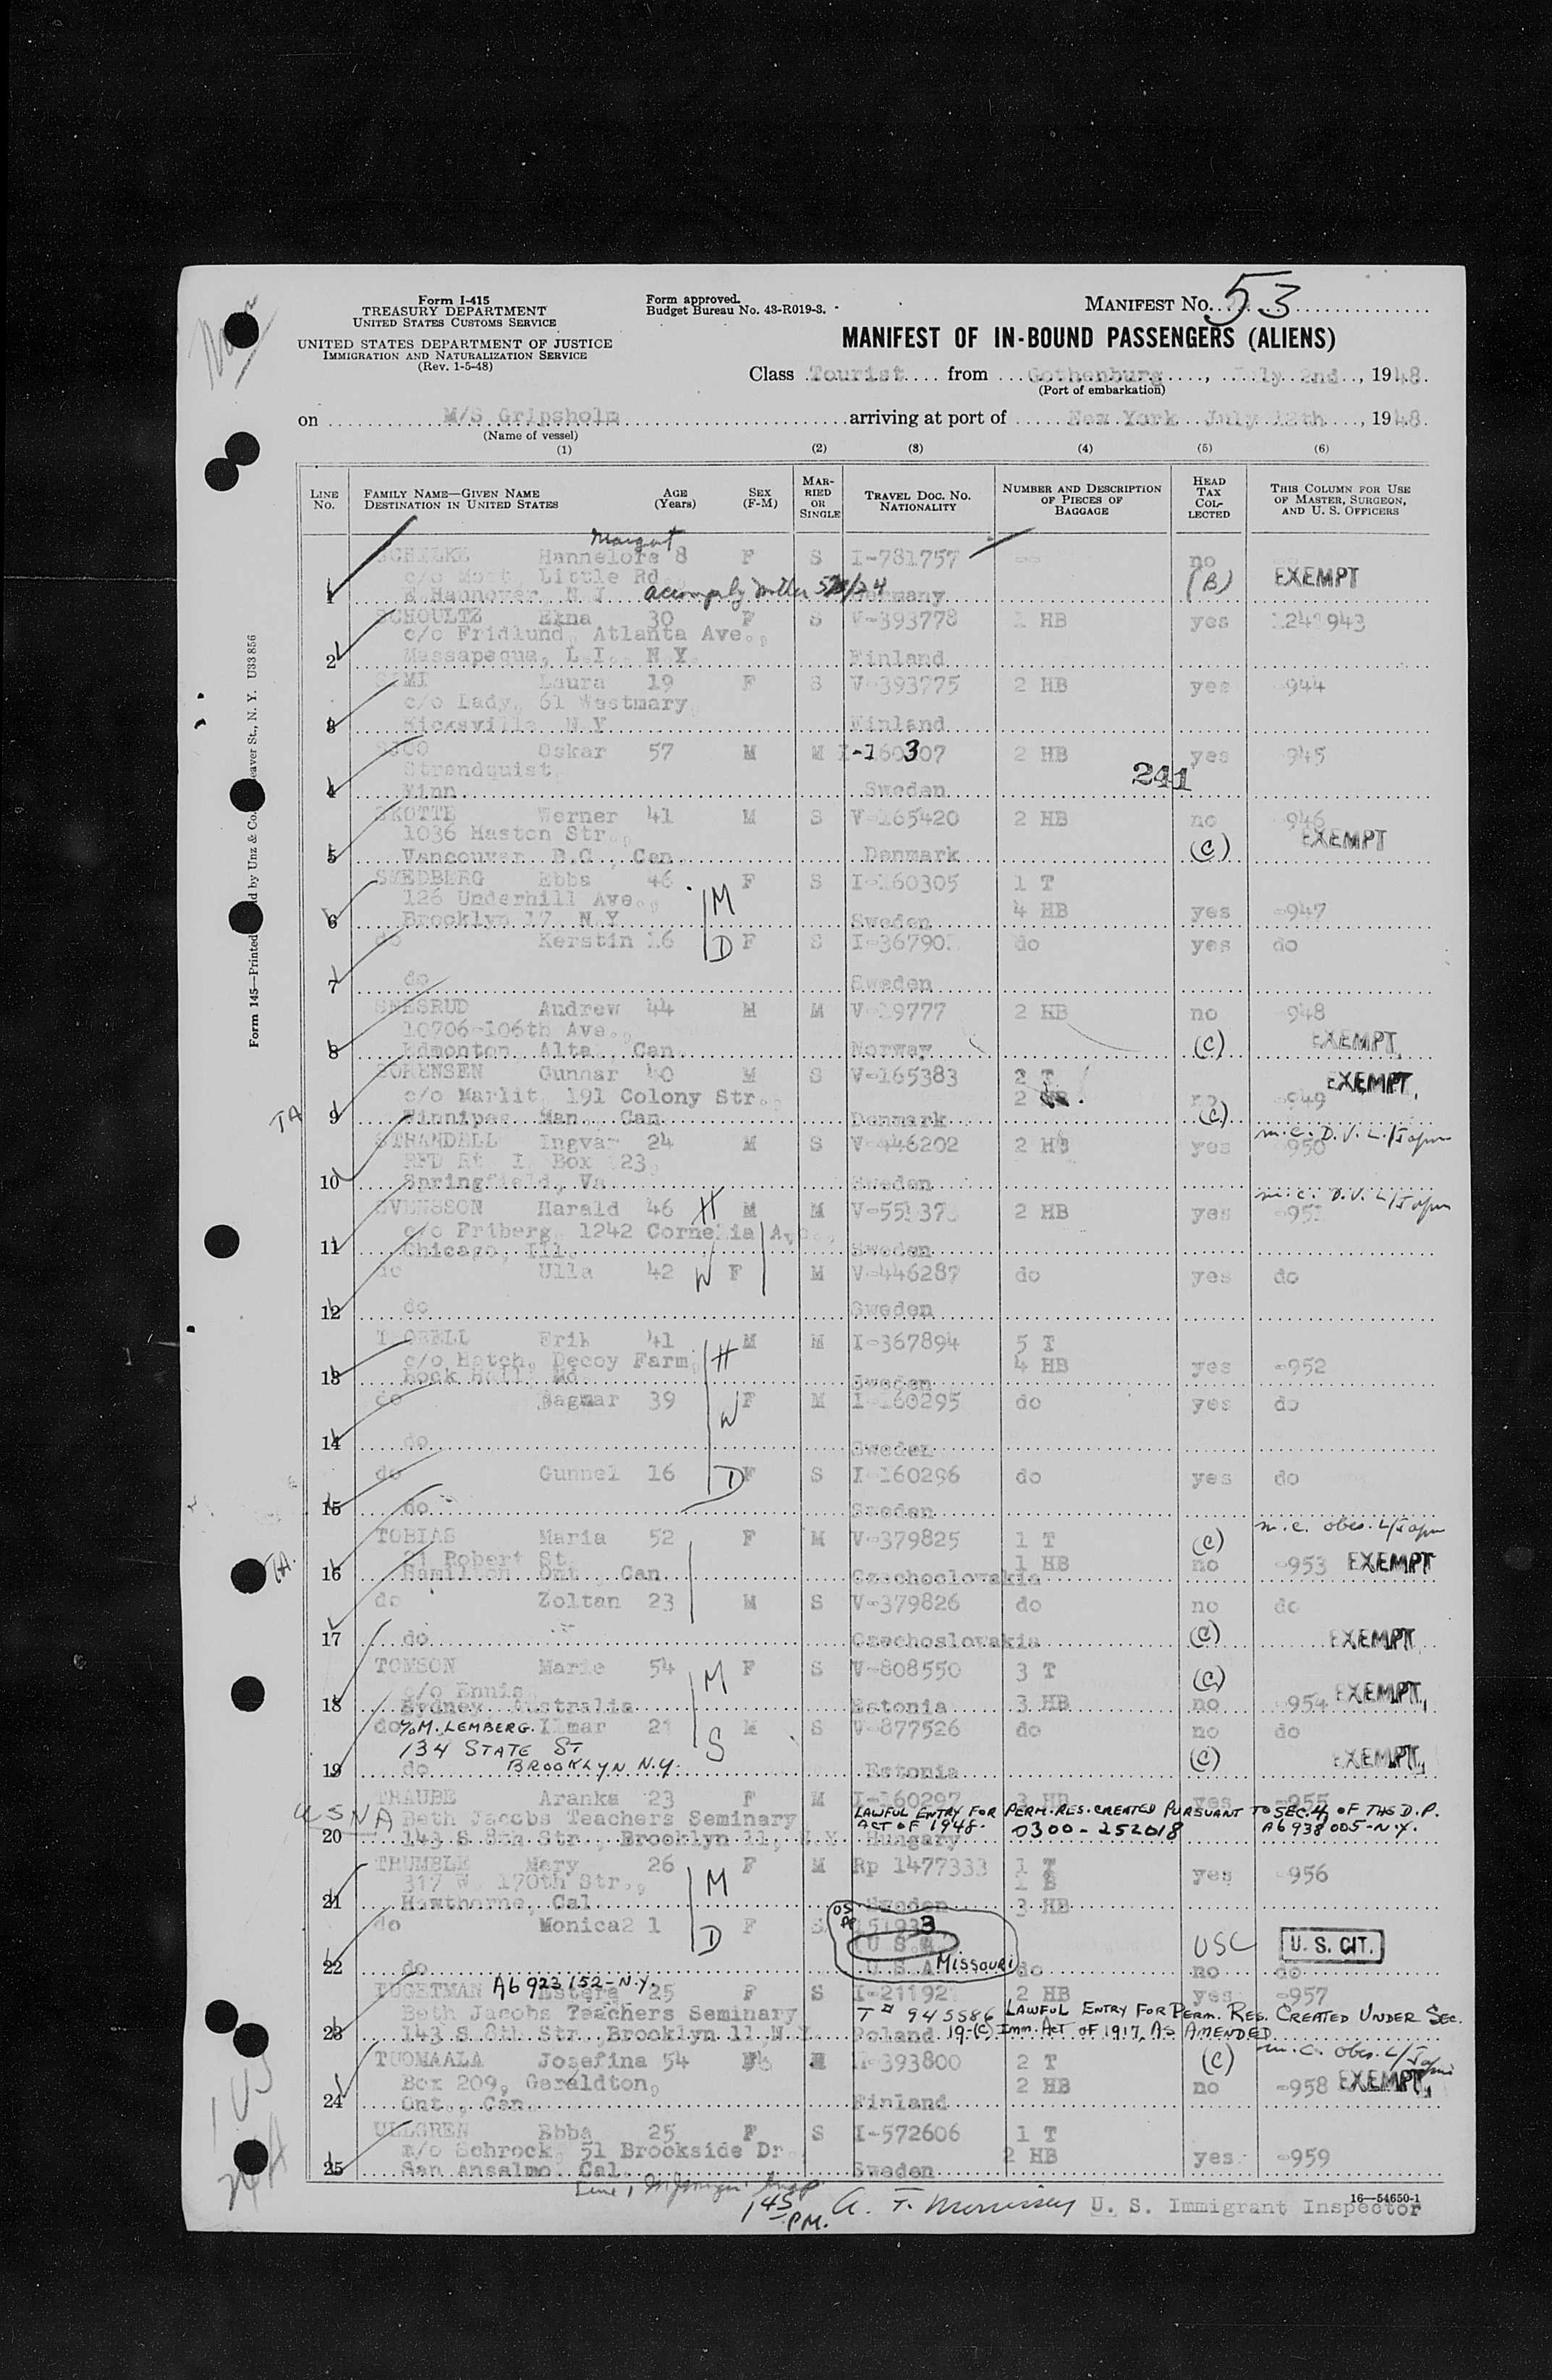 Form I-415
TREASURY DEPARTMENT
UNITED STATES CUSTOMS SERVICE
UNITED STATES DEPARTMENT OF JUSTICE
IMMIGRATION AND NATURALIZATION SERVICE
(Rev. 1-5-48)
Form approved.
Budget Bureau No. 43-R019-3.
MANIFEST NO. 53
MANIFEST OF IN-BOUND PASSENGERS (ALIENS)
Class Tourist from Gothenburg, July 2nd, 1948
(Port of embarkation)
on M/S Gripsholm arriving at port of New York July 12th, 1948
(Name of vessel)
(1) (2) (3) (4) (5) (6)
LINE NO. FAMILY NAME—GIVEN NAME DESTINATION IN UNITED STATES AGE (Years) SEX (F-M) MARRIED OR SINGLE TRAVEL DOC. NO. NATIONALITY NUMBER AND DESCRIPTION OF PIECES OF BAGGAGE HEAD TAX COLLECTED THIS COLUMN FOR USE OF MASTER, SURGEON, AND U. S. OFFICERS
Margot
Hannelore 8 F S I-781757 -- no
c/o Little Rd (B) EXEMPT
1 Hannover N J Germany
SCHOULTZ 30 F S V-393778 1 HB yes 943
c/o Fridlund, Atlanta Ave.,
2 Massapequa, L.I., N.Y. Finland
Laura 19 F S V-393775 2 HB yes -944
c/o Lady, 61 Westmary,
3 Hicksville N.Y Finland
Oskar 57 M M I-160307 2 HB yes 945
Strandquist, 241
4 Minn Sweden
SKOTTE Werner 41 M S V-165420 2 HB no -946
1036 Haston Str., EXEMPT
5 Vancouver B.C., Can. Denmark (C)
SMEDBERG Ebba 46 M F S I-160305 1 T
126 Underhill Ave., 4 HB yes -947
6 Brooklyn 17 N.Y. Sweden
do Kerstin 16 D F S do yes do
7 do Sweden
SNESRUD Andrew 44 M M 2 HB no -948
10706-106th Ave., EXEMPT
8 Edmonton, Alta., Can. Norway (C)
SORENSEN Gunnar 40 M S V-165383 2 T EXEMPT
c/o Marlit, 191 Colony Str., 2 no -949
TA 9 Winnipeg Man., Can. Denmark (C)
STRANDELL Ingvar 24 M S V-446202 2 HB yes -950
RFD Rt. I, Box 23,
10 Springfield, Va. Sweden
SVENSSON Harald 46 H M M 2 HB yes
c/o Friberg, 1242 Cornelia Ave.,
11 Chicago, Ill. Sweden
do Ulla 42 W F M V-446287 do yes do
12 do Sweden
Erik 41 M M I-367894 5 T
c/o Hatch, Decoy Farm, H 4 HB yes -952
13 Rock Hall, Md. Sweden
do Dagmar 39 W F M I-160295 do yes do
14 do Sweden
do Gunnel 16 D F S I-160296 do yes do
15 do Sweden
TOBIAS Maria 52 F M V-379825 1 T (C)
21 Robert St. 1 HB no -953 EXEMPT
16 Hamilton Ont., Can. Czechoslovakia
do Zoltan 23 M S V-379826 do no do
17 do Czechoslovakia (C) EXEMPT
TOMSON Marie 54 M F S V-808550 3 T (C)
c/o Ennis EXEMPT
18 Sydney Australia Estonia 3 HB no -954
do c/o M. LEMBERG. Ilmar 21 S M S V-877526 do no do
134 STATE ST
19 do BROOKLYN N.Y. Estonia (C) EXEMPT
TRAUBE Aranka 23 F M I-160297 3 HB yes -955
USNA Beth Jacobs Teachers Seminary LAWFUL ENTRY FOR PERM. RES. CREATED PURSUANT TO SEC. 4 OF THE D.P. ACT OF 1948.
20 143 S. 8th Str., Brooklyn 11, N.Y. Hungary 0300-252018 A6 938 005-N.Y.
TRUMBLE Mary 26 M F M Rp 1477333 1 T yes -956
317 W. 170th Str., 1 B
21 Hawthorne, Cal. Sweden 3 HB
do Monica 1 D F S
U S A USC U. S. CIT.
22 do U.S.A. MISSOURI do no do
A6 923 152-N.Y.
25 F S 2 HB yes -957
Beth Jacobs Teachers Seminary T# 945586 LAWFUL ENTRY FOR PERM. RES. CREATED UNDER SEC.
23 143 S. 8th Str., Brooklyn 11, N.Y. Poland 19-(C) IMM. ACT OF 1917, AS AMENDED
TUOMAALA Josefina 54 2 T (C)
Box 209, Geraldton, 2 HB no -958 EXEMPT
24 Ont., Can. Finland
ULLGREN Ebba 25 F S I-572606 1 T
c/o Schrock, 51 Brookside Dr. 2 HB yes -959
25 San Anselmo, Cal. Sweden
1 45 P.M. U. S. Immigrant Inspector
16—54650-1